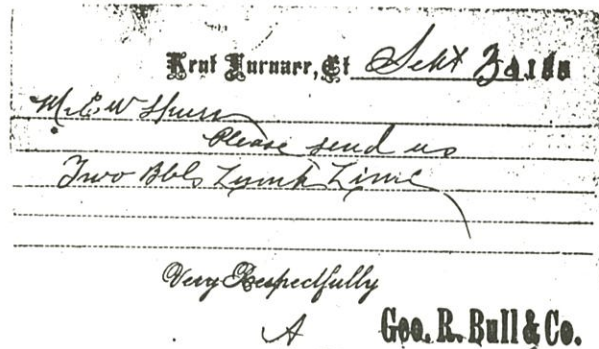 Kent Furnace, Ct Sept 3d, 188
M. E W Spurr
Please send us
Two Bbls Lump Lime
Very Respectfully
Geo. R. Bull & Co.